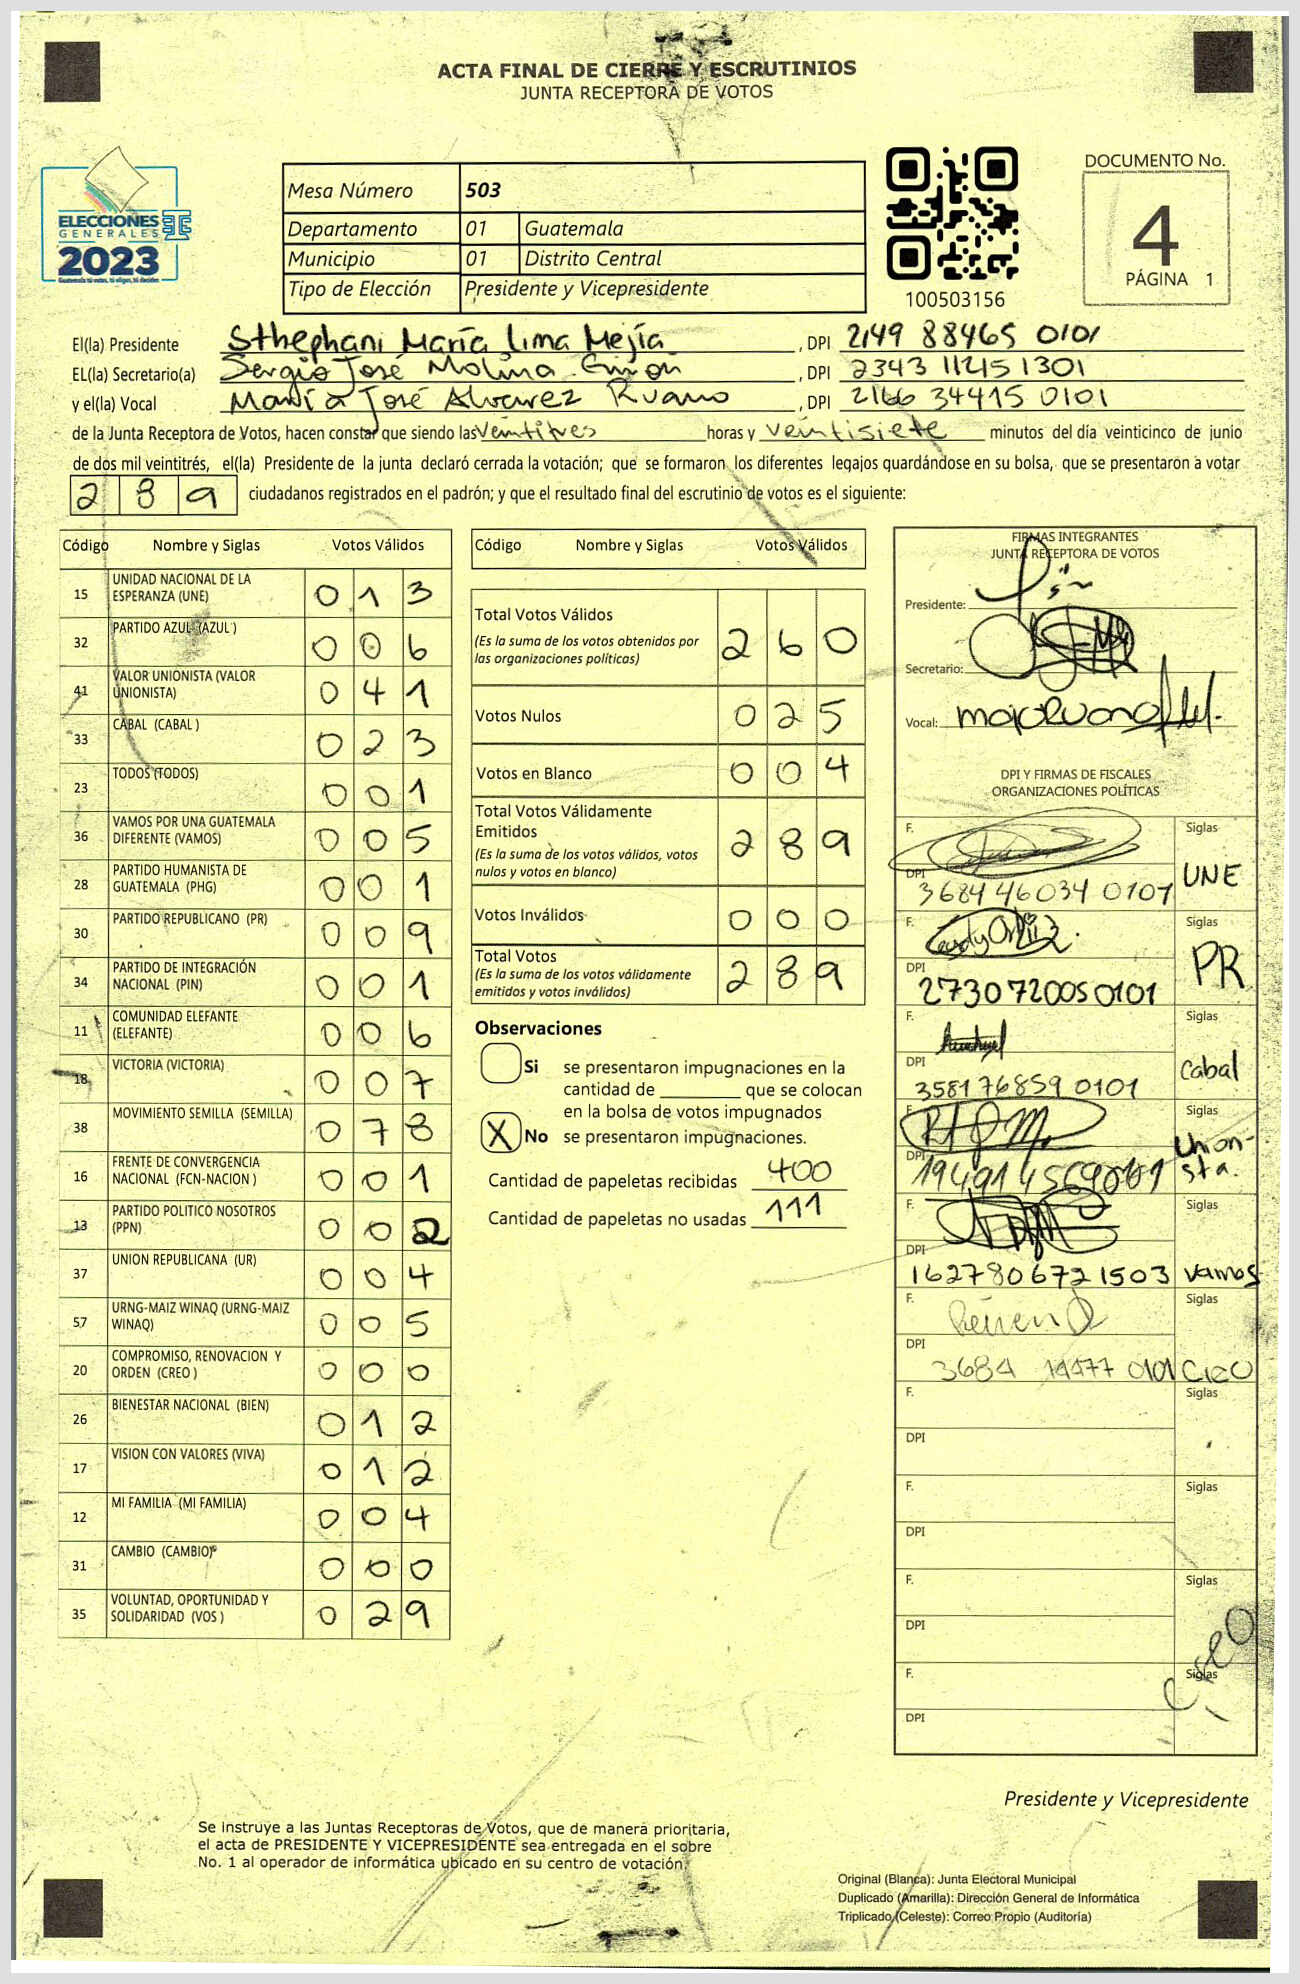 ACTA FINAL DE CIERRE Y ESCRUTINIOS
JUNTA RECEPTORA DE VOTOS
ELECCIONES
GENERALES
2023
Guatemala tú votas, tú eliges, tú decides
Mesa Número 503
Departamento 01 Guatemala
Municipio 01 Distrito Central
Tipo de Elección Presidente y Vicepresidente
100503156
DOCUMENTO No.
4
PÁGINA 1
El(la) Presidente Sthephani María Lima Mejía , DPI 2149 88465 0101
EL(la) Secretario(a) Sergio José Molina , DPI 2343 11215 1301
y el(la) Vocal María José Alvarez Ruano , DPI 2166 34415 0101
de la Junta Receptora de Votos, hacen constar que siendo las veintitres horas y veintisiete minutos del día veinticinco de junio
de dos mil veintitrés, el(la) Presidente de la junta declaró cerrada la votación; que se formaron los diferentes legajos guardándose en su bolsa, que se presentaron a votar
2 8 9 ciudadanos registrados en el padrón; y que el resultado final del escrutinio de votos es el siguiente:
Código Nombre y Siglas Votos Válidos
15 UNIDAD NACIONAL DE LA ESPERANZA (UNE) 0 1 3
32 PARTIDO AZUL (AZUL ) 0 0 6
41 VALOR UNIONISTA (VALOR UNIONISTA) 0 4 1
33 CABAL (CABAL ) 0 2 3
23 TODOS (TODOS) 0 0 1
36 VAMOS POR UNA GUATEMALA DIFERENTE (VAMOS) 0 0 5
28 PARTIDO HUMANISTA DE GUATEMALA (PHG) 0 0 1
30 PARTIDO REPUBLICANO (PR) 0 0 9
34 PARTIDO DE INTEGRACIÓN NACIONAL (PIN) 0 0 1
11 COMUNIDAD ELEFANTE (ELEFANTE) 0 0 6
18 VICTORIA (VICTORIA) 0 0 7
38 MOVIMIENTO SEMILLA (SEMILLA) 0 7 8
16 FRENTE DE CONVERGENCIA NACIONAL (FCN-NACION ) 0 0 1
13 PARTIDO POLITICO NOSOTROS (PPN) 0 0 2
37 UNION REPUBLICANA (UR) 0 0 4
57 URNG-MAIZ WINAQ (URNG-MAIZ WINAQ) 0 0 5
20 COMPROMISO, RENOVACION Y ORDEN (CREO ) 0 0 0
26 BIENESTAR NACIONAL (BIEN) 0 1 2
17 VISION CON VALORES (VIVA) 0 1 2
12 MI FAMILIA (MI FAMILIA) 0 0 4
31 CAMBIO (CAMBIO) 0 0 0
35 VOLUNTAD, OPORTUNIDAD Y SOLIDARIDAD (VOS ) 0 2 9
Código Nombre y Siglas Votos Válidos
Total Votos Válidos
(Es la suma de los votos obtenidos por
las organizaciones políticas) 2 6 0
Votos Nulos 0 2 5
Votos en Blanco 0 0 4
Total Votos Válidamente
Emitidos
(Es la suma de los votos válidos, votos
nulos y votos en blanco) 2 8 9
Votos Inválidos 0 0 0
Total Votos
(Es la suma de los votos válidamente
emitidos y votos inválidos) 2 8 9
Observaciones
Si se presentaron impugnaciones en la
cantidad de ________ que se colocan
en la bolsa de votos impugnados
X No se presentaron impugnaciones.
Cantidad de papeletas recibidas 400
Cantidad de papeletas no usadas 111
FIRMAS INTEGRANTES
JUNTA RECEPTORA DE VOTOS
Presidente:
Secretario:
Vocal: majoRuano
DPI Y FIRMAS DE FISCALES
ORGANIZACIONES POLÍTICAS
F. Siglas
DPI 3684 46034 0107 UNE
F. Siglas
DPI 2730720050101 PR
F. Siglas
DPI 3581 76859 0101 Cabal
F. Siglas
DPI Unionsta.
F. Siglas
DPI 1627806721503 Vamos
F. Siglas
DPI 3684 14477 0101 CREO
F. Siglas
DPI
F. Siglas
DPI
F. Siglas
DPI
F. Siglas
DPI
CREO
Presidente y Vicepresidente
Se instruye a las Juntas Receptoras de Votos, que de manera prioritaria,
el acta de PRESIDENTE Y VICEPRESIDENTE sea entregada en el sobre
No. 1 al operador de informática ubicado en su centro de votación.
Original (Blanca): Junta Electoral Municipal
Duplicado (Amarilla): Dirección General de Informática
Triplicado (Celeste): Correo Propio (Auditoría)